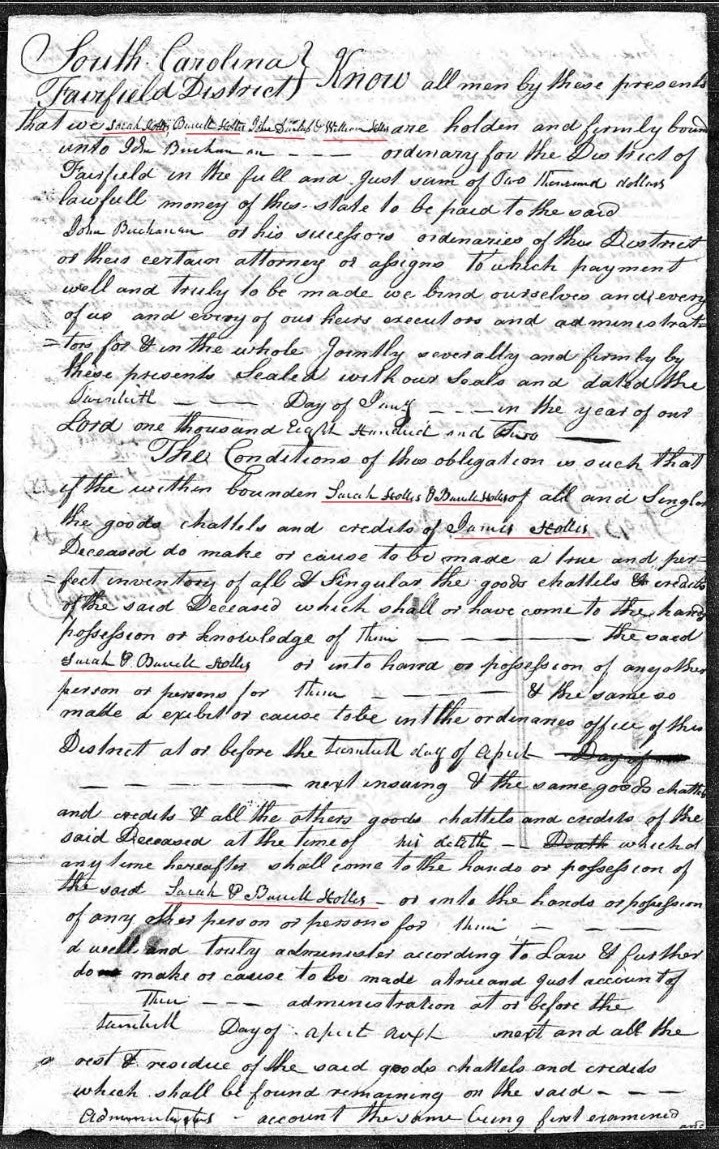 South Carolina }
Fairfield District } Know all men by these presents
that we Sarah Hollis Burrell Hollis John Dunlap & William Hollis are holden and firmly boun
unto John Buchanan - - - ordinary for the District of
Fairfield in the full and Just sum of Two thousand dollars
lawfull money of this state to be paid to the said
John Buchanan or his sucessors ordinaries of this District
or their certain attorney or assigns to which payment
well and truly to be made we bind ourselves and every
of us and every of our heirs executors and administrat
=tors for & in the whole Jointly severally and firmly by
these presents Sealed with our Seals and dated the
Twentieth - - - Day of - - - in the year of our
Lord one thousand Eight Hundred and Two
The Conditions of this obligation is such that
if the within bounden Sarah Hollis & Burrell Hollis of all and Singlar
the goods chattels and credits of James Hollis
Deceased do make or cause to be made a true and per=
=fect inventory of all & Singular the goods chattels & credits
of the said Deceased which shall or have come to the hand
possession or knowledge of them - - - the said
Sarah & Burrell Hollis or into hand or possession of any other
person or persons for them - - - & the same so
made d exibit or cause to be in the ordinaries office of this
District at or before the twentieth day of April Day of
- - - next insuing & the same goods chattls
and credits & all the others goods chattels and credits of the
said Deceased at the time of his death - Death which d
any time hereafter shall come to the hands or possession of
the said Sarah & Burrell Hollis - or into the hands or possession
of any other person or persons for them - - -
d well and truly administer according to Law & further
do make or cause to be made a true and Just account of
Their - - - administration at or before the
twentieth Day of April next next and all the
rest & residue of the said goods chattels and credits
which shall be found remaining on the said - - -
Administrators - account the same being first examined
and